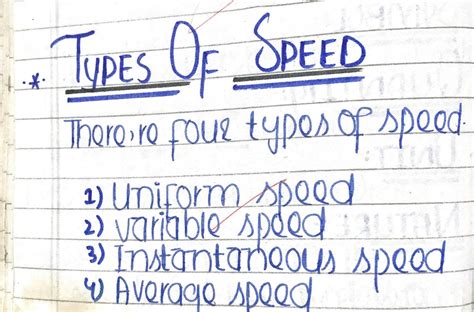 * TYPES OF SPEED
There're four types of speed.
1) Uniform speed
2) variable speed
3) Instantaneous speed
4) Average speed